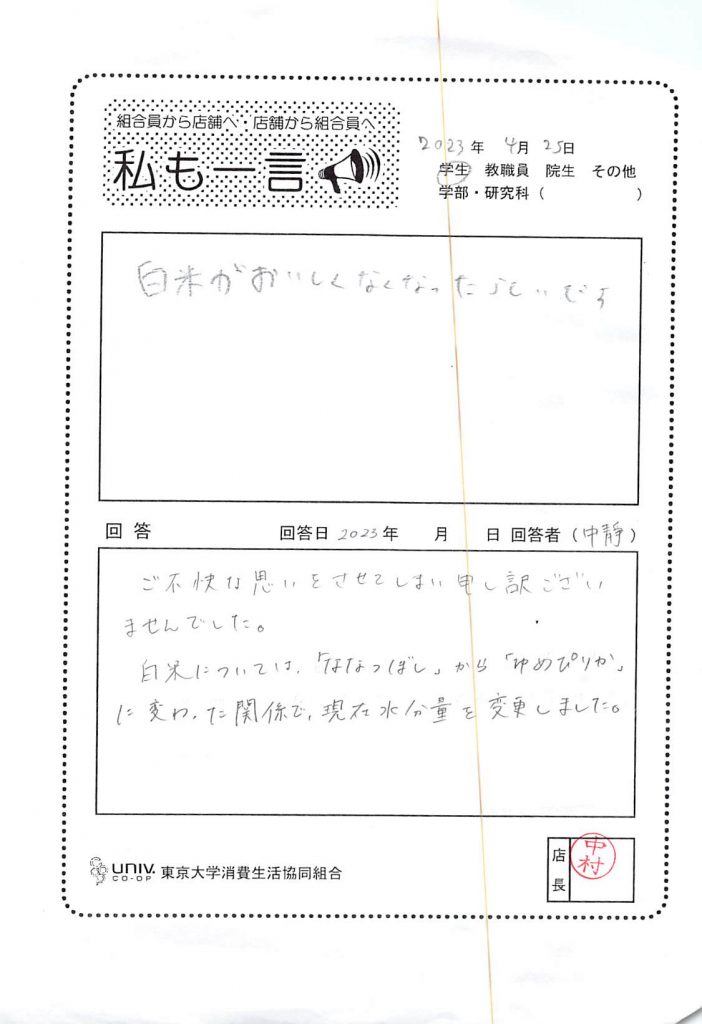 組合員から店舗へ・店舗から組合員へ
私も一言
2023年 4月 25日
学生 教職員 院生 その他
学部・研究科( )
白米がおいしくなくなったらしいです
回答 回答日 2023年 月 日 回答者(中静)
ご不快な思いをさせてしまい申し訳ござい
ませんでした。
白米については、「ななつぼし」から「ゆめぴりか」
に変わった関係で、現在水分量を変更しました。
UNIV.
CO-OP
東京大学消費生活協同組合
店長
中村